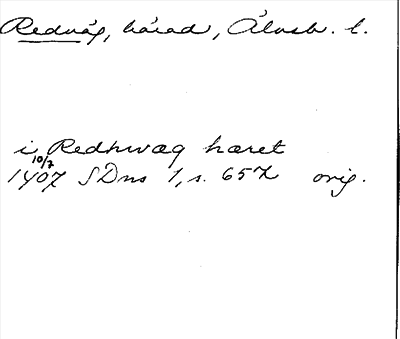 Redväg, härad, Älvsb. l.
i Redhwæg hæret
10/7
1407 SDns 1, s. 657 orig.